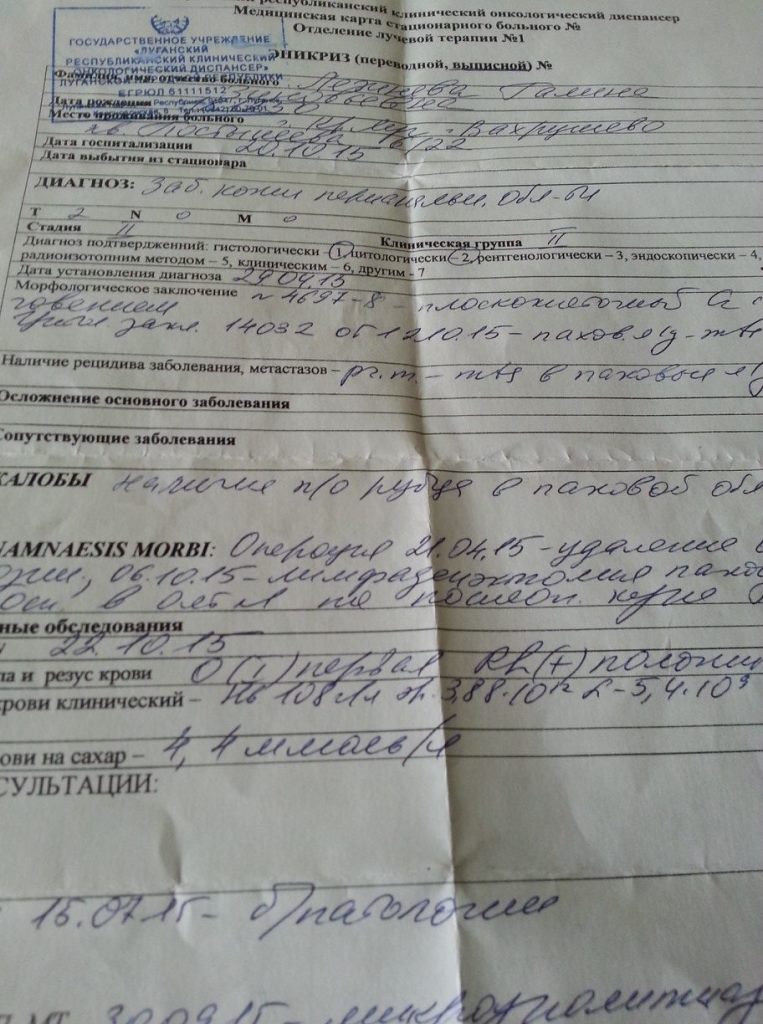 республиканский клинический онкологический диспансер
Медицинская карта стационарного больного №
Отделение лучевой терапии №1
ЭПИКРИЗ (переводной, выписной) №
ГОСУДАРСТВЕННОЕ УЧРЕЖДЕНИЕ
«ЛУГАНСКИЙ
РЕСПУБЛИКАНСКИЙ КЛИНИЧЕСКИЙ
ОНКОЛОГИЧЕСКИЙ ДИСПАНСЕР»
ЕГРЮЛ 61111512
Фамилия, имя, отчество больного Галина
Дата рождения
Место проживания больного Вахрушево
кв. 16/22
Дата госпитализации 20.10.15
Дата выбытия из стационара
ДИАГНОЗ: Заб. кожи перианальн. обл-ти
Т 2 N 0 М 0
Стадия II Клиническая группа II
Диагноз подтвержденний: гистологически – 1, цитологически – 2, рентгенологически – 3, эндоскопически – 4,
радиоизотопним методом – 5, клиническим – 6, другим - 7
Дата установления диагноза 29.04.15
Морфологическое заключение № 4697-8 - плоскоклеточный Cr с
говением
закл. 14032 от 12.10.15 - пахов. л/у - mts
Наличие рецидива заболевания, метастазов – pr. m. - mts в паховые л/у
Осложнение основного заболевания
Сопутствующие заболевания
ЖАЛОБЫ наличие п/о рубца в паховой обл
ANAMNAESIS MORBI: Операция 21.04.15 - удаление
кожи, 06.10.15 - лимфаденэктомия пахо
ные обследования
22.10.15
па и резус крови O (I) первая Rh (+) положи
крови клинический – Hb 108 г/л эр. 3,88·10¹² L-5,4·10⁹
ови на сахар – 4,4 ммоль/л
СУЛЬТАЦИИ:
15.07.15 - б/патологии
30.09.15 -